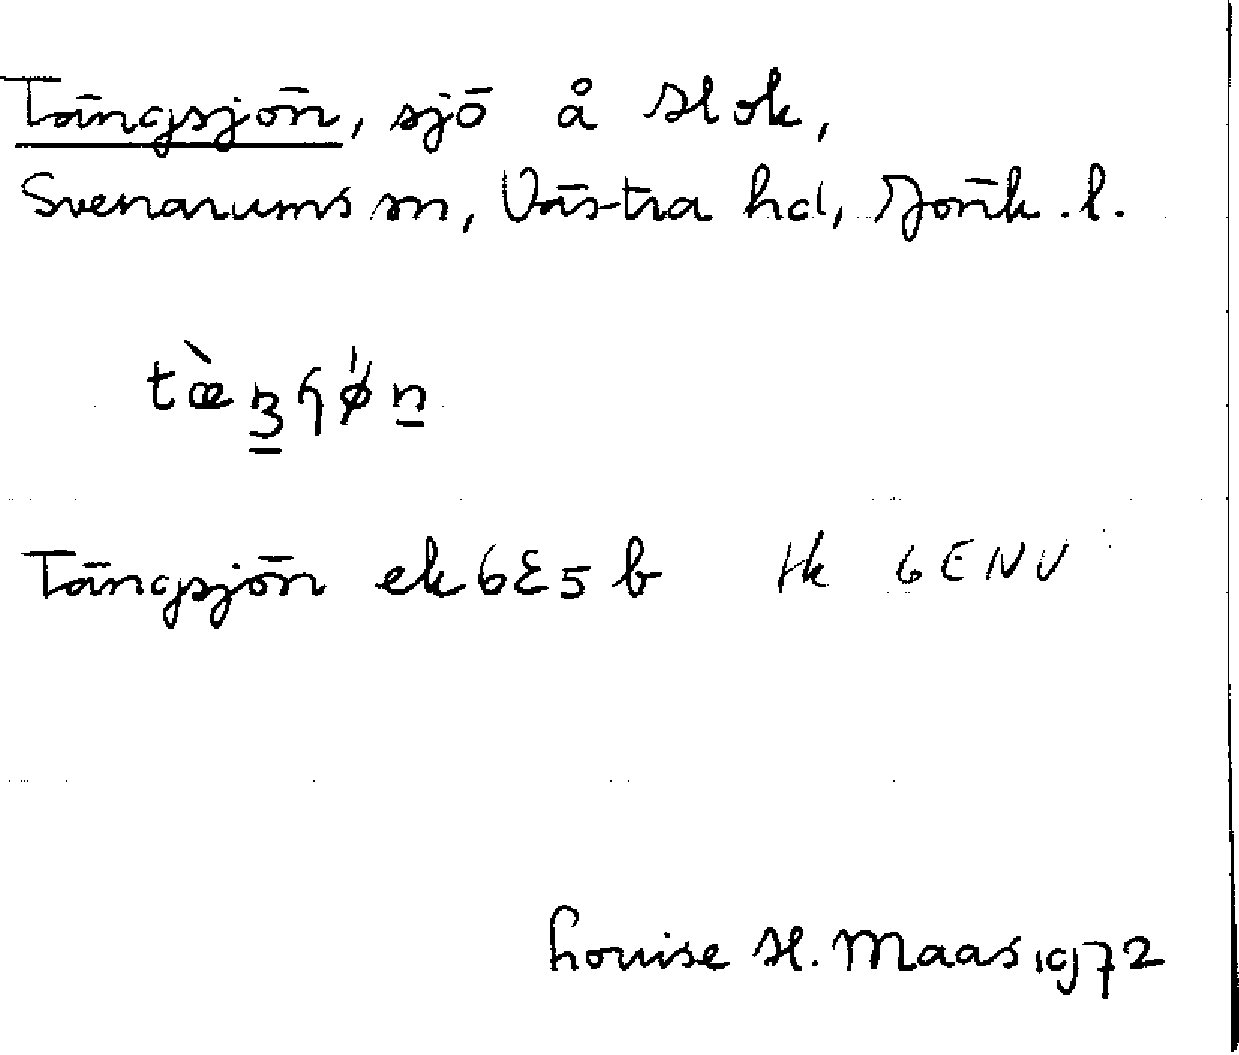 Tängsjön, sjö å Hok,
Svenarums sn, Västra hd, Jönk. l.
Tängsjön ek 6E5b tk 6E NV
Louise H. Maas 1972